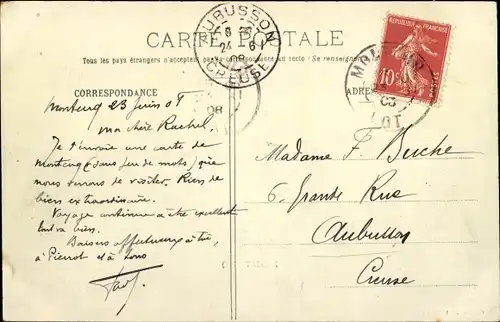 CARTE POSTALE
Tous les pays étrangers n'acceptent pas la correspondance au recto (Se renseigner
CORRESPONDANCE
ADRE
AUBUSSON
24 6
08
CREUSE
REPUBLIQUE FRANÇAISE
10
POSTES
LOT
08
Montcuq 23 juin 08
ma chère Rachel.
Je t'envoie une carte de
Montcuq (sans jeu de mots) que
nous venons de visiter. Rien de
bien extraordinaire.
Voyage continue à être excellent
tout va bien.
Baisers affectueux à toi,
à Pierrot et à tous
Madame F. Buche
6. Grande Rue
Aubusson
Creuse